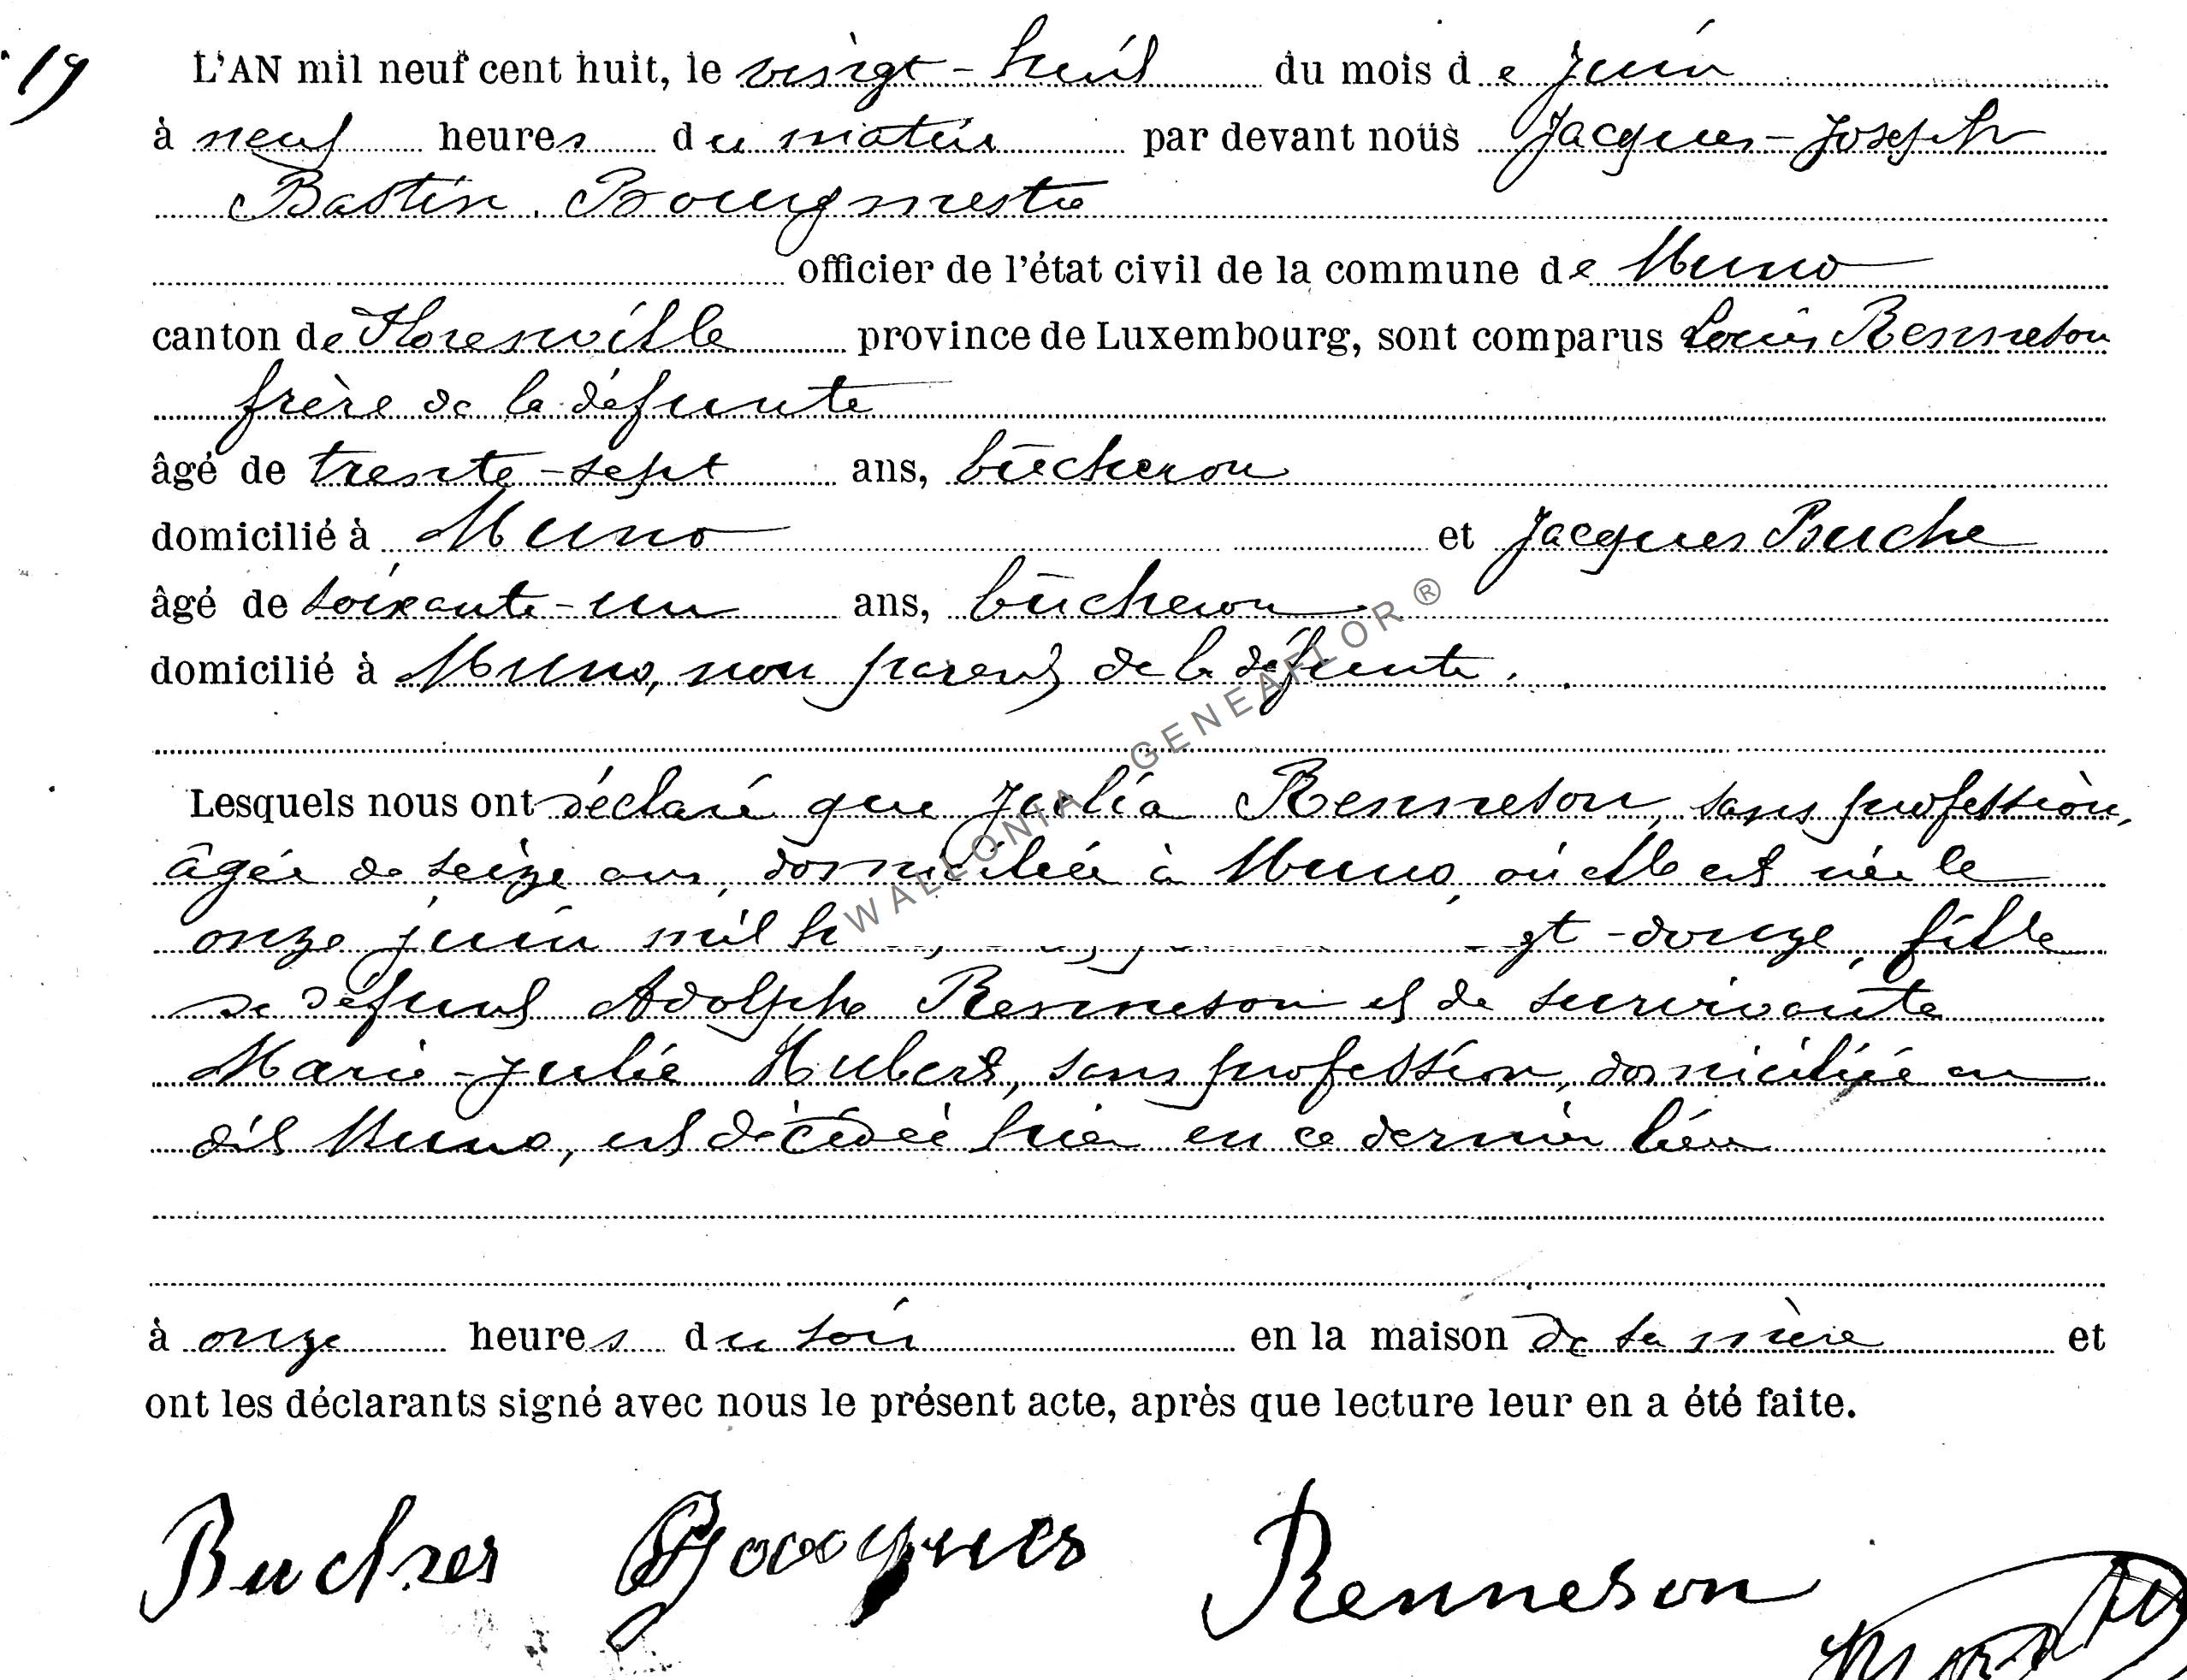 19
L'AN mil neuf cent huit, le vingt-huit du mois de juin
à neuf heures du matin par devant nous Jacques-Joseph
Bastin, Bourgmestre
officier de l'état civil de la commune de Muno
canton de Florenville province de Luxembourg, sont comparus Louis Renneson
frère de la défunte
âgé de trente-sept ans, bûcheron
domicilié à Muno et Jacques Buche
âgé de soixante-un ans, bûcheron
domicilié à Muno, non parent de la défunte.
WALLONIA - GENEAFLOR ®
Lesquels nous ont déclaré que Julia Renneson, sans profession,
âgée de seize ans, domiciliée à Muno, où elle est née le
onze juin mil gt-douze, fille
de défunt Adolphe Renneson et de survivante
Marie-Julie Hubert, sans profession, domiciliée au
dit Muno, est décédée hier en ce dernier lieu
à onze heures du soir en la maison de sa mère et
ont les déclarants signé avec nous le présent acte, après que lecture leur en a été faite.
Buches Jacques Renneson